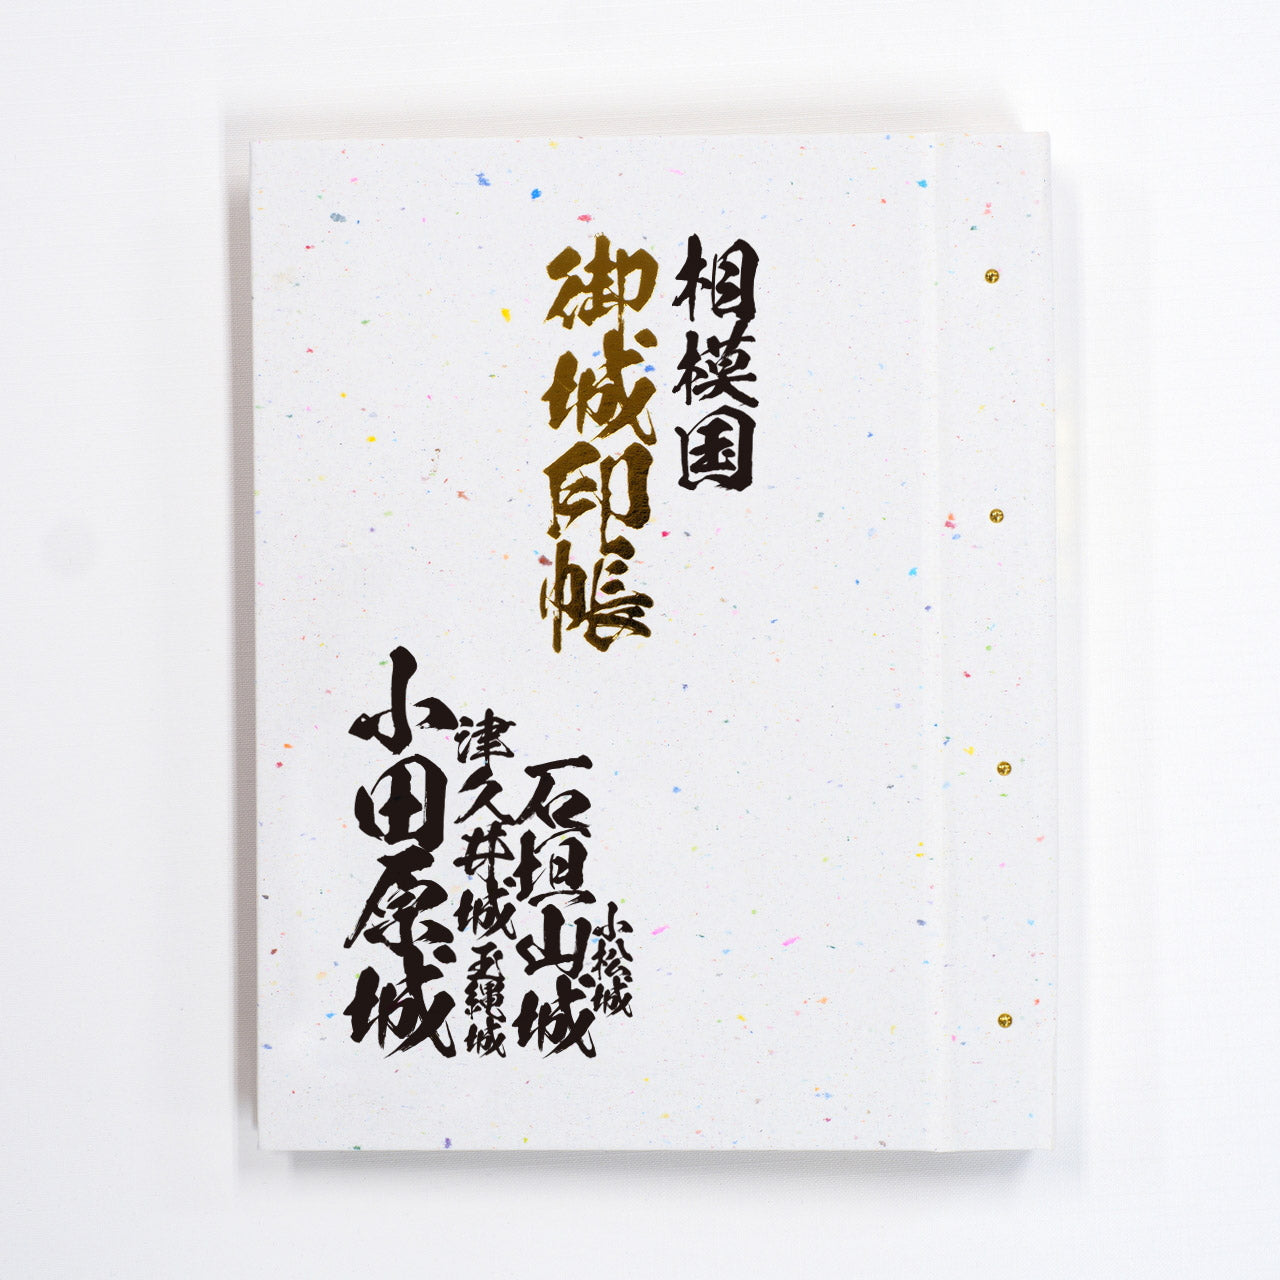 相模国
御城印帳
小松城
石垣山城
津久井城
玉縄城
小田原城